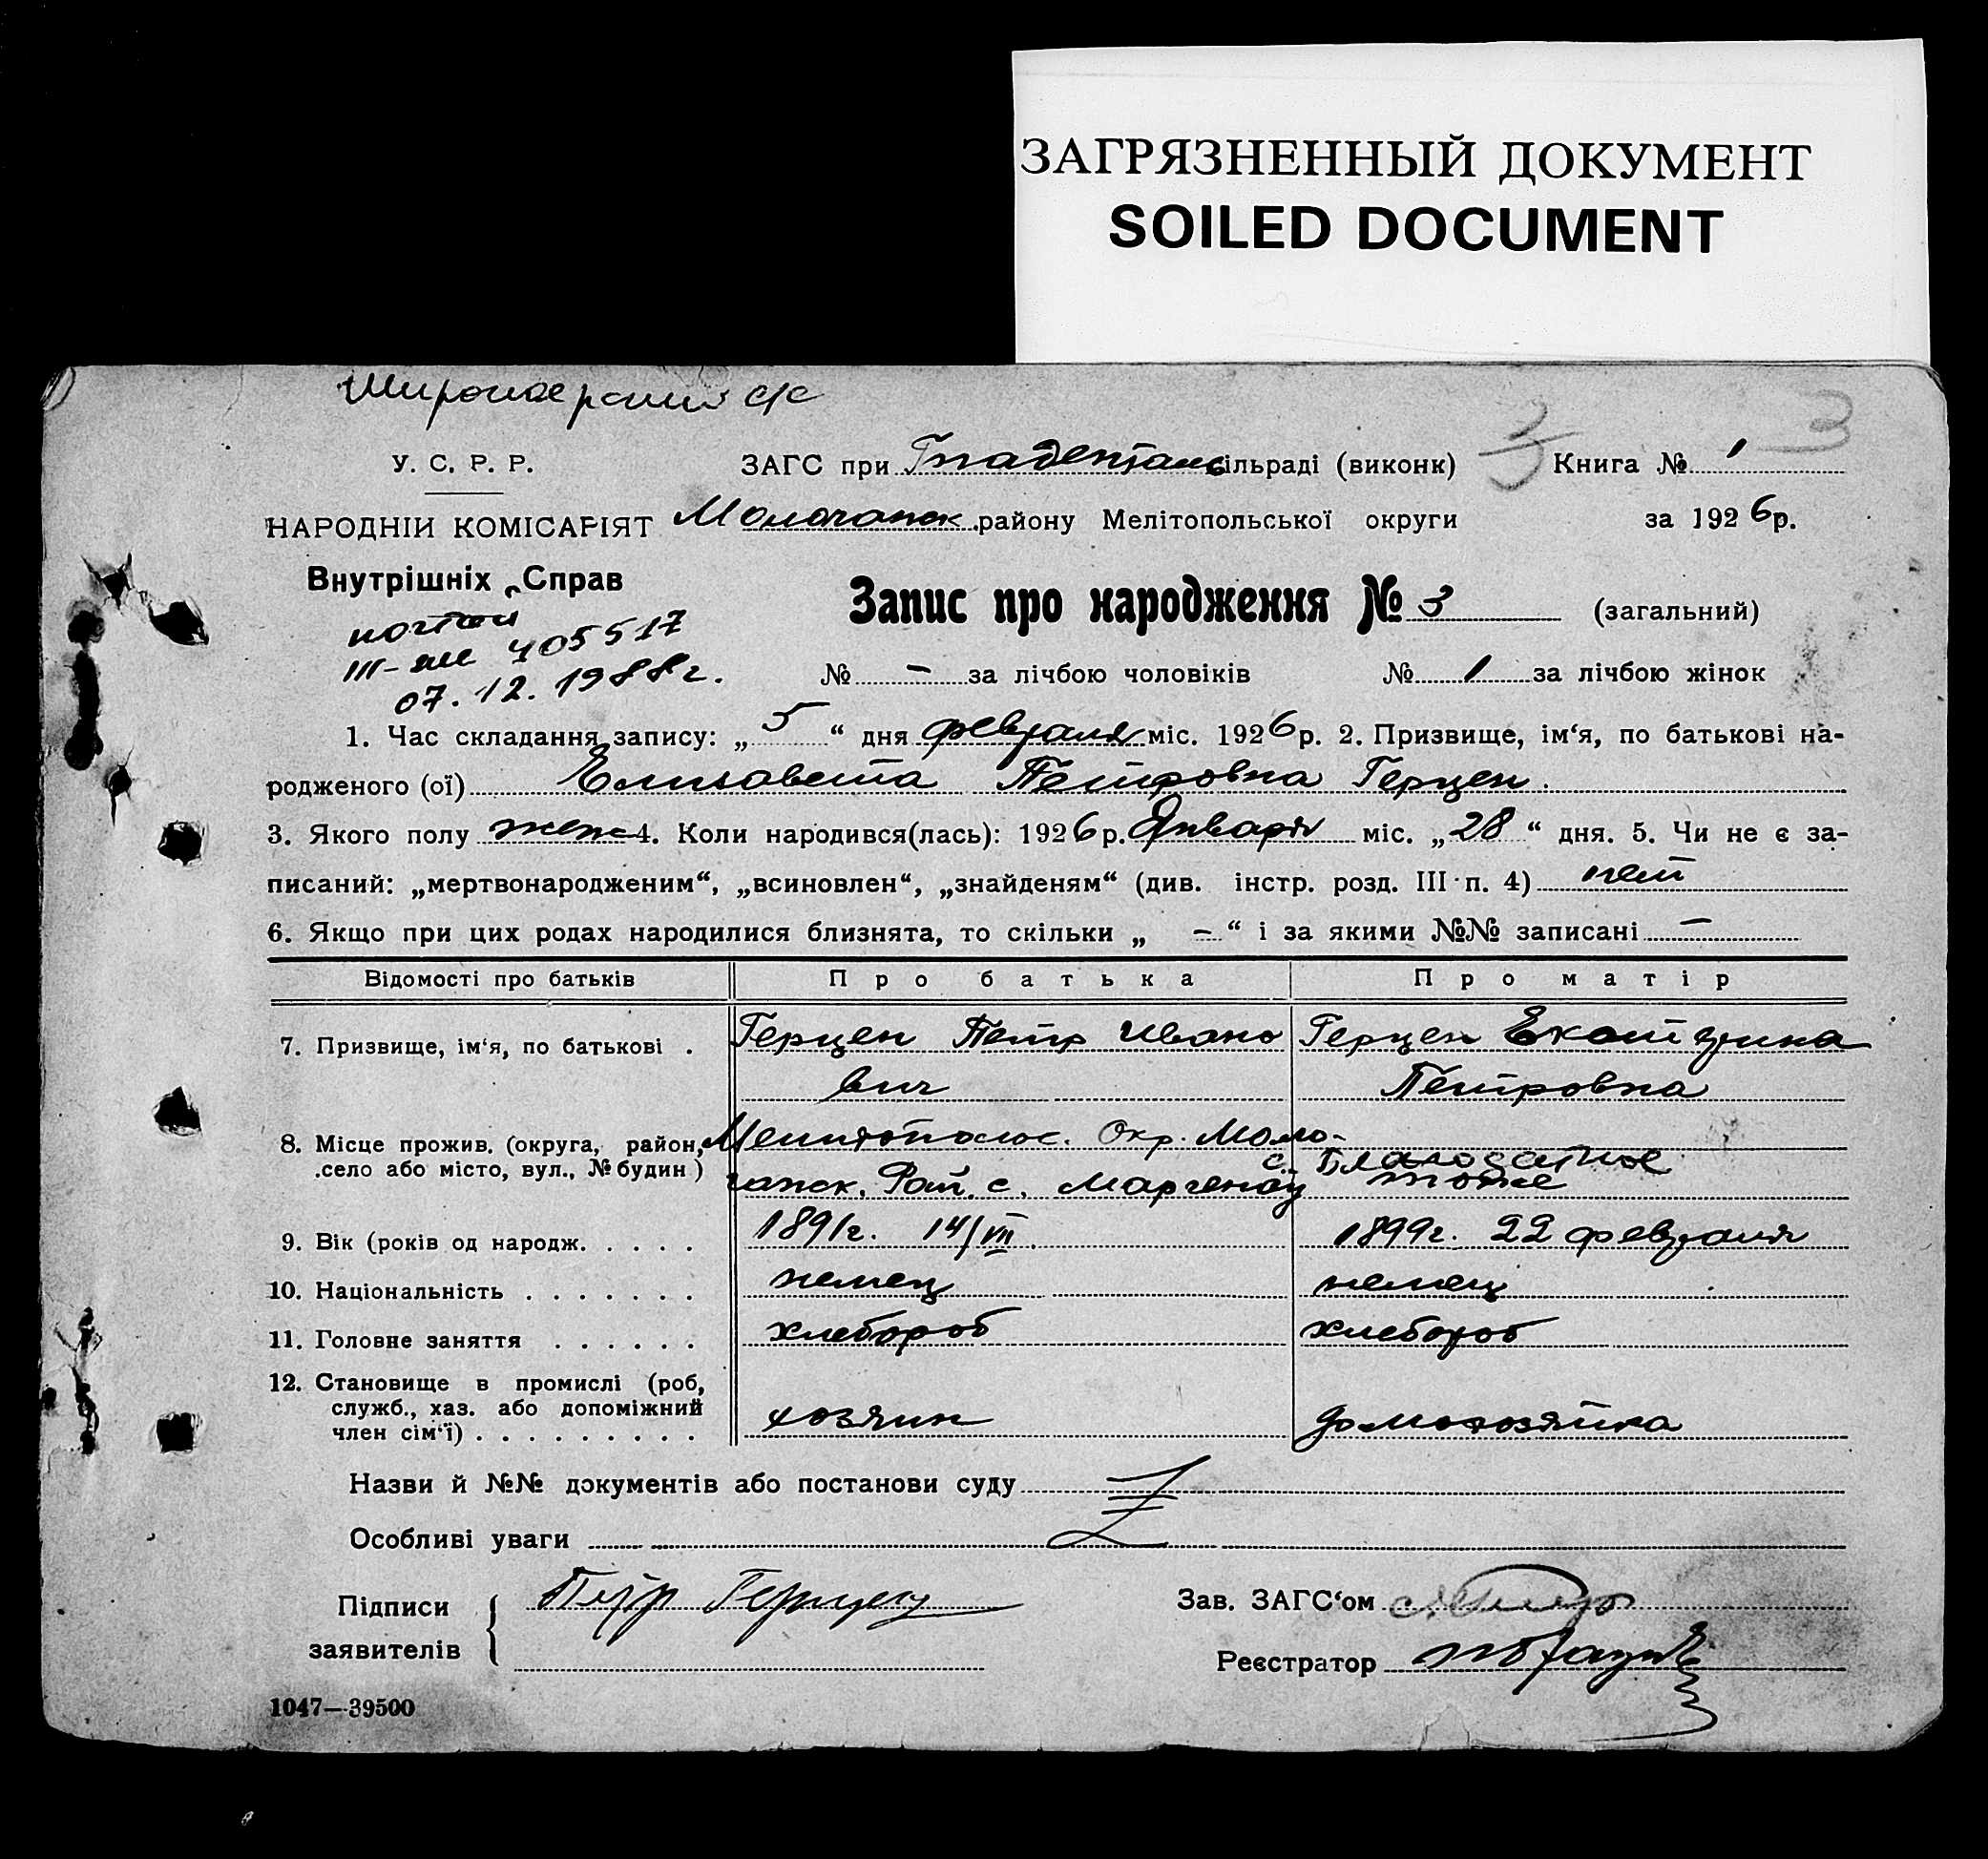 ЗАГРЯЗНЕННЫЙ ДОКУМЕНТ
SOILED DOCUMENT
с/с
3
У. С. Р. Р. ЗАГС при Гнаденталь сільраді (виконк) Книга № 1
НАРОДНІЙ КОМІСАРІЯТ Молочанск. району Мелітопольської округи за 1926 р.
Внутрішніх Справ
Запис про народження № 3 (загальний)
III-ЖС 405517
07.12.1988 г.
№ – за лічбою чоловіків № 1 за лічбою жінок
1. Час складання запису: „ 5 “ дня февраля міс. 1926 р. 2. Призвище, ім‘я, по батькові на-
родженого (ої) Елизавета Петровна Герцен.
3. Якого полу жен 4. Коли народився(лась): 1926 р. Января міс. „ 28 “ дня. 5. Чи не є за-
писаний: „мертвонародженим“, „всиновлен“, „знайденям“ (див. інстр. розд. III п. 4) нет
6. Якщо при цих родах народилися близнята, то скільки „ – “ і за якими №№ записані –
Відомості про батьків Про батька Про матір
7. Призвище, ім‘я, по батькові . Герцен Петр Ивано Герцен Екатерина
вич Петровна
8. Місце прожив. (округа, район, Мелитопольс. Окр. Моло-
село або місто, вул., № будин ) с. Благодатное
чанск. Рай. с. Маргенау тоже
9. Вік (років од народж. . . . . 1891 г. 14/VII. 1899 г. 22 февраля
10. Національність . . . . . . . немец немец
11. Головне заняття . . . . . . хлебороб хлебороб
12. Становище в промислі (роб,
служб., хаз. або допоміжний
член сім‘ї) . . . . . . . . . хозяин домохозяйка
Назви й №№ документів або постанови суду
Особливі уваги
Підписи Петр Герцен Зав. ЗАГС‘ом
заявителів Реєстратор
1047—39500